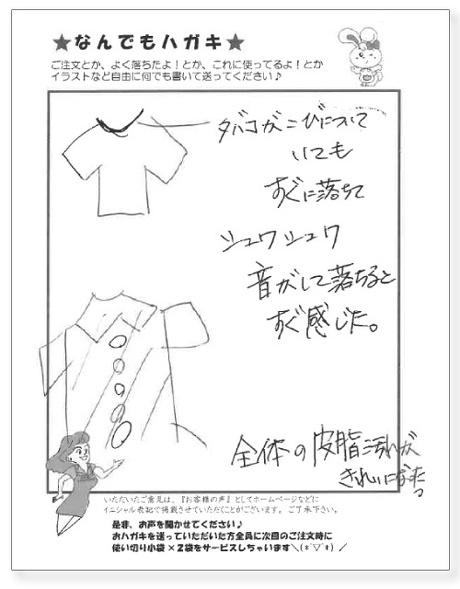 ★なんでもハガキ★
ご注文とか、よく落ちたよ！とか、これに使ってるよ！とか
イラストなど自由に何でも書いて送ってください♪
タバコがこびについて
いても
すぐに落ちて
シュワシュワ
音がして落ちると
すぐ感じた。
全体の皮脂汚れが
きれいになった
いただいたご意見は、『お客様の声』としてホームページなどに
イニシャル表記で掲載させていただくことがございます。ご了承下さい。
是非、お声を聞かせてください♪
おハガキを送っていただいた方全員に次回のご注文時に
使い切り小袋×2袋をサービスしちゃいます＼(*ˆ▽ˆ*)／